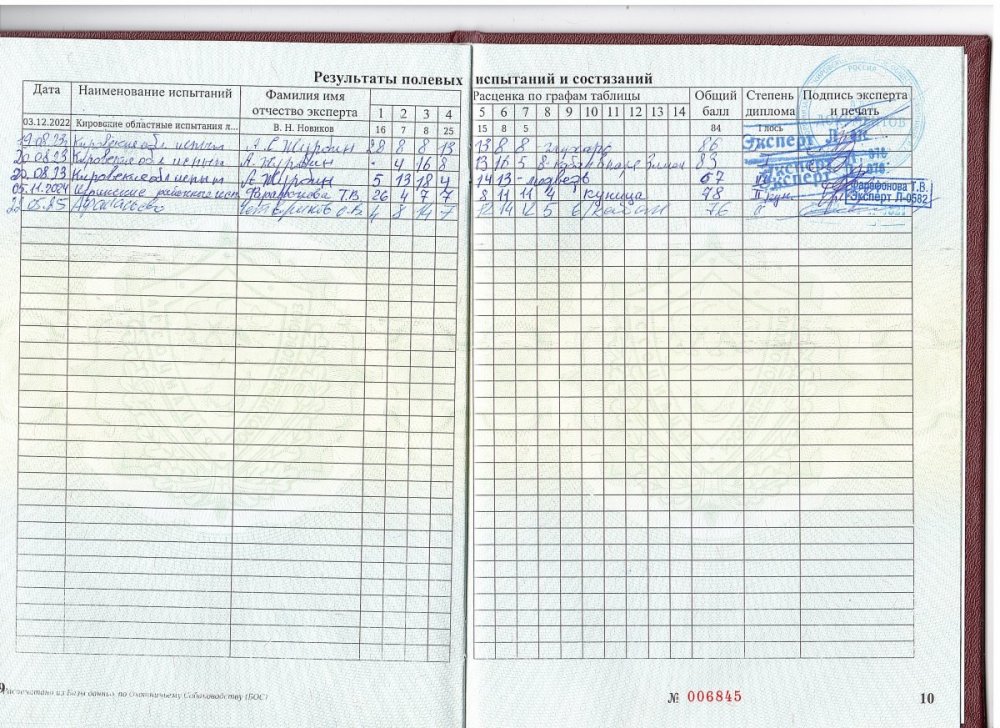 Результаты полевых испытаний и состязаний
Дата Наименование испытаний Фамилия имя отчество эксперта Расценка по графам таблицы Общий балл Степень диплома Подпись эксперта и печать
1 2 3 4 5 6 7 8 9 10 11 12 13 14
03.12.2022 Кировские областные испытания л... В. Н. Новиков 16 7 8 25 15 8 5 84 I лось
19.08.23 Кировские обл испыт А. В. Журбин 28 8 8 13 13 8 8 глухарь 86
20.08.23 Кировские обл испыт А. Журбин - 4 16 8 13 16 5 8 кабан 83
20.08.23 Кировские обл испыт А Журбин 5 13 18 4 14 13 - медведь 67
05.11.2024 районные исп Фарафонова Т.В. 26 4 7 7 8 11 11 4 куница 78 II кун
05.25 Четвериков 4 8 14 7 12 14 12 5 6 кабан 76
РОССИЯ
Эксперт
Эксперт
Эксперт
Фарафонова Т.В.
Эксперт Л-0582
Распечатано из Базы данных по Охотничьему Собаководству (БОС)
№ 006845
9
10